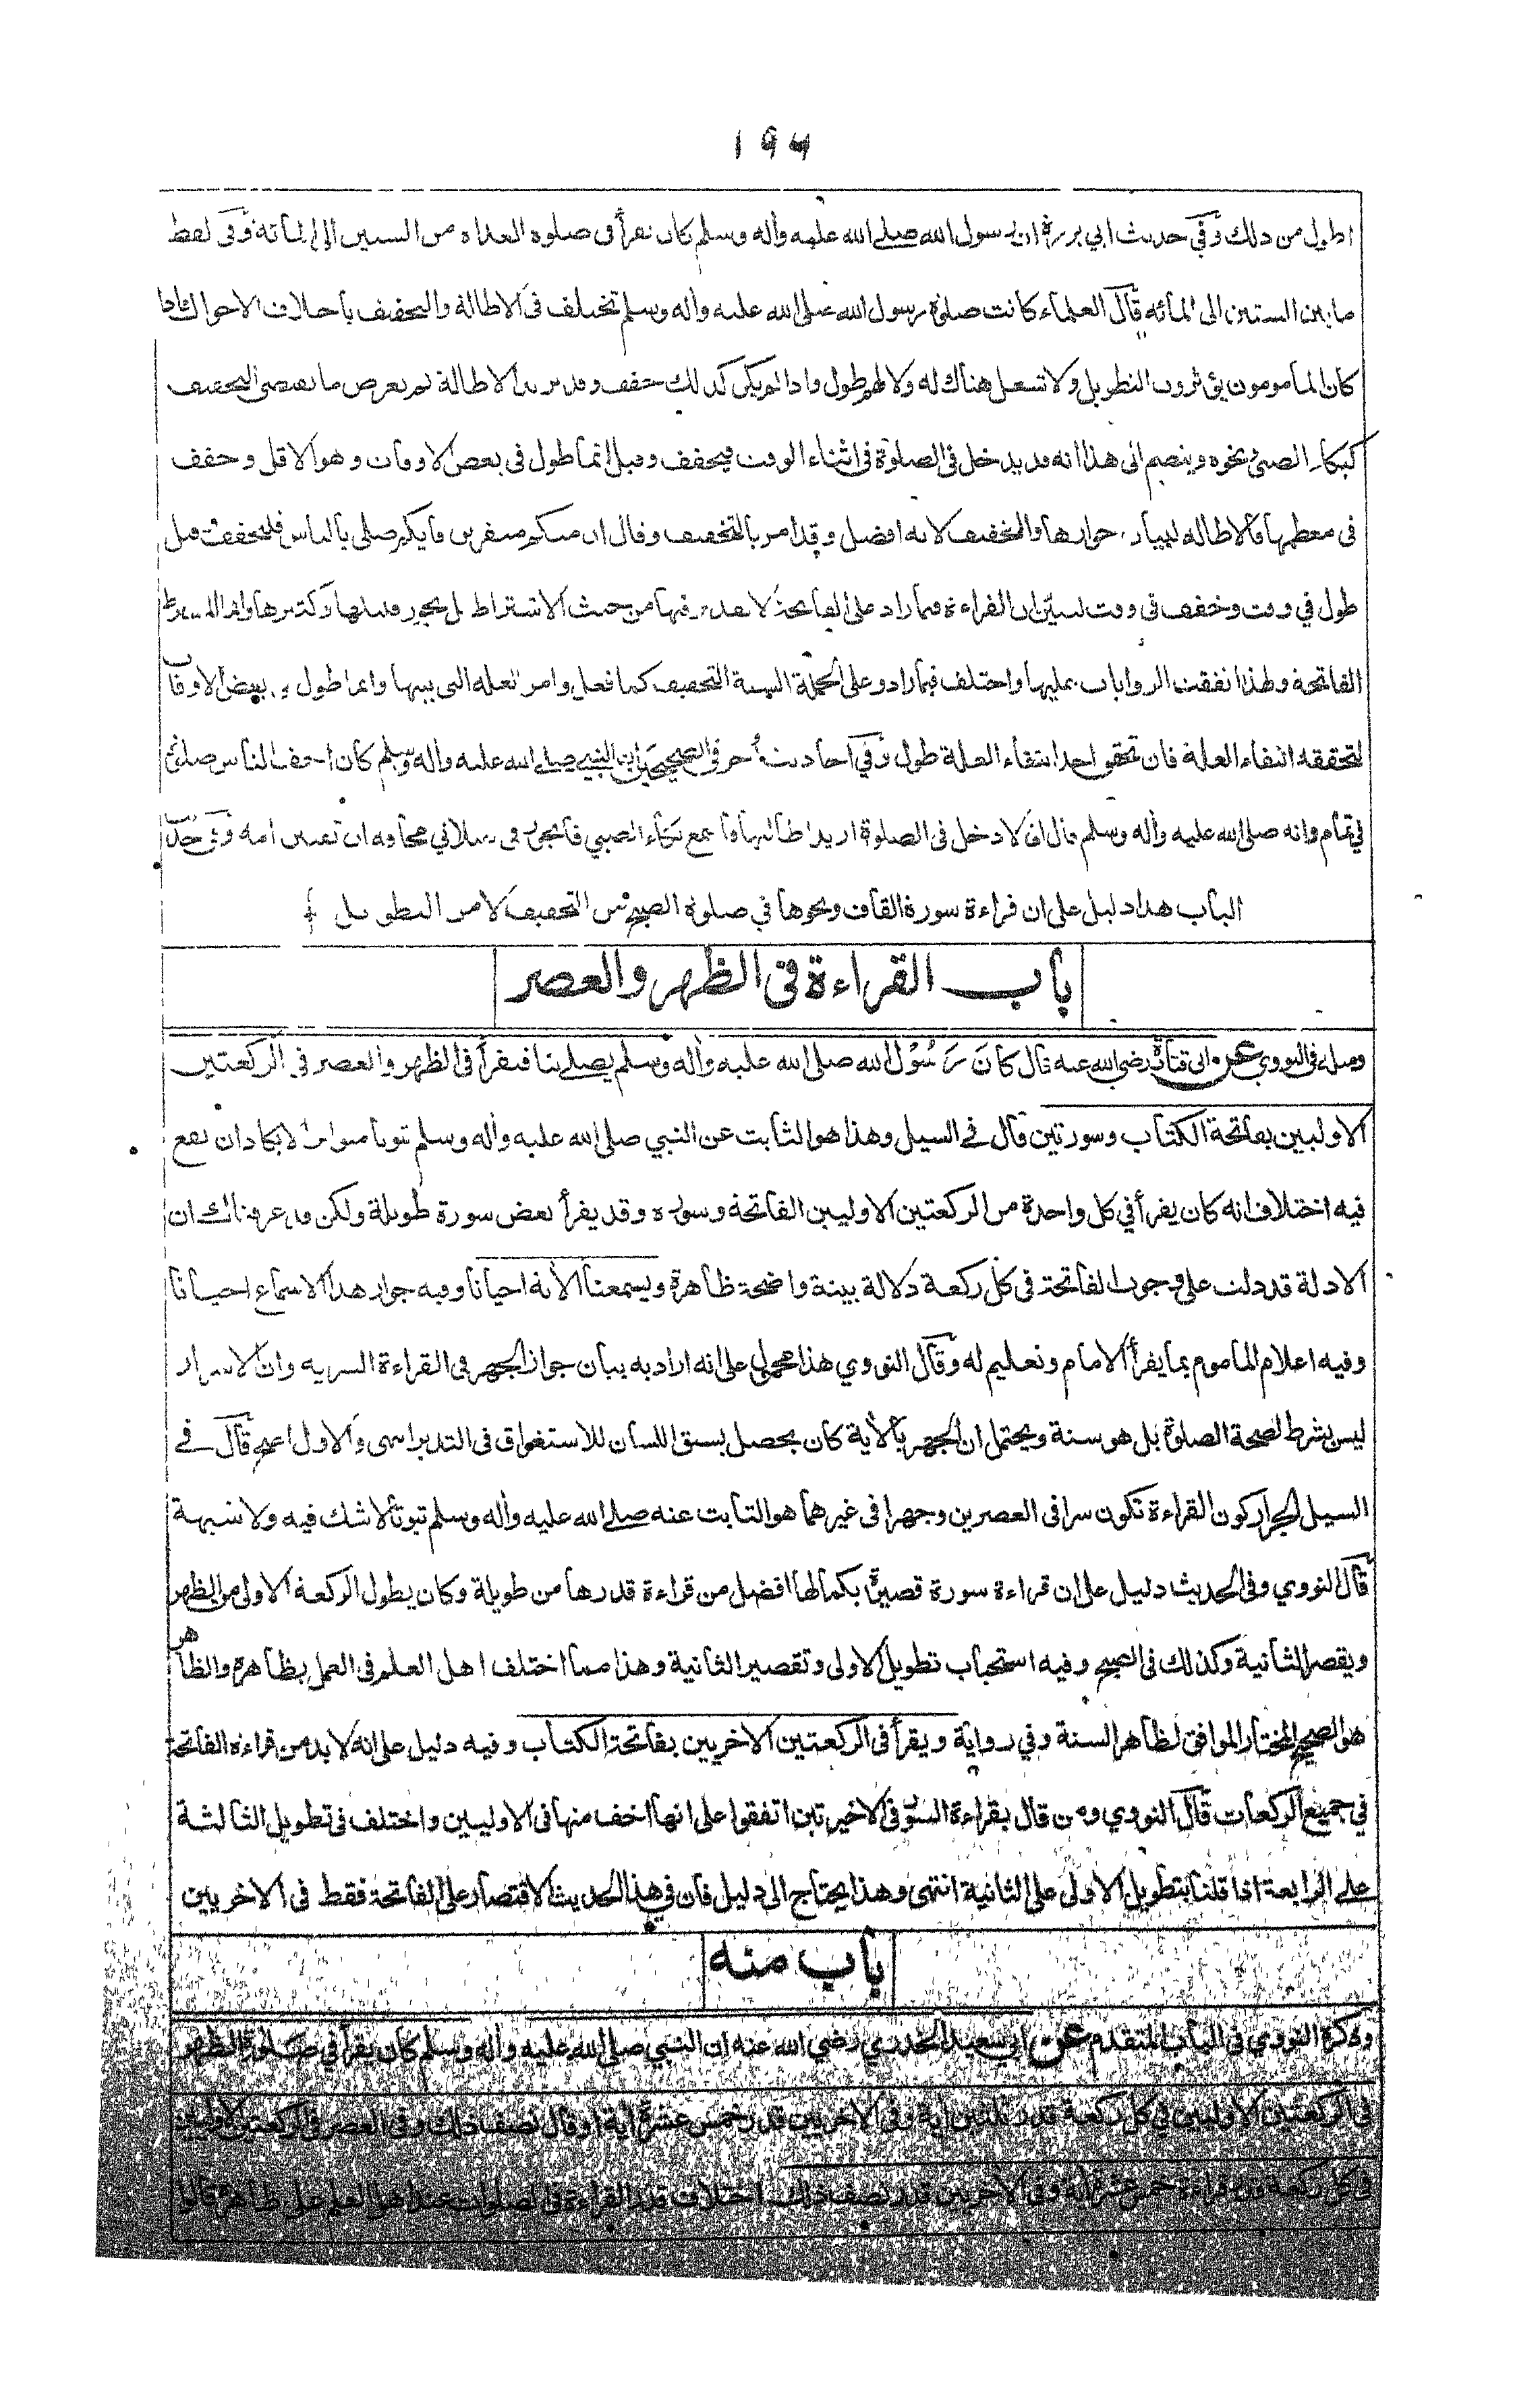 ١٩٧
اطول من ذلك وفي حديث ابي برزة ان رسول الله صلى الله عليه وأله وسلم كان يقرأ في صلوة الغداة من الستين الى المائة وفي لفظ
ما بين الستين الى المائه قال العلماء كانت صلوة رسول الله صلى الله عليه وأله وسلم تختلف في الاطالة والتخفيف باختلاف الاحوال فاذا
كان المأمومون يؤثرون التطويل ولا شغل هناك له ولا لهم طول واذا لم يكن كذلك خفف وقد يريد الاطالة ثم يعرض ما يقتضي التخفيف
كبكاء الصبي ونحوه وينضم الى هذا انه قد يدخل في الصلوة في اثناء الوقت فيخفف وقيل انما طول في بعض الاوقات وهو الاقل وخفف
في معظمها فالاطالة لبيان جوازها والتخفيف لانه افضل وقد امر بالتخفيف وقال ان منكم منفرين فأيكم صلى بالناس فليخفف وقيل
طول في وقت وخفف في وقت ليبين ان القراءة فيما زاد على الفاتحة لا تقدير فيها من حيث الاشتراط بل يجوز قليلها وكثيرها وانما المشترط
الفاتحة ولهذا اتفقت الروايات عليها واختلف فيما زاد وعلى الجملة السنة التخفيف كما فعل وامر للعلة التي بينها وانما طول في بعض الاوقات
لتحققه انتفاء العلة فان تحقق احد انتفاء العلة طول وفي احاديث أخر في الصحيحين ان النبي صلى الله عليه وأله وسلم كان اخف الناس صلوة
في تمام وانه صلى الله عليه وأله وسلم قال اني لادخل في الصلوة اريد اطالتها فأسمع بكاء الصبي فأتجوز في صلاتي مخافة ان تفتتن امه وفي حديث
الباب هذا دليل على ان قراءة سورة القاف ونحوها في صلوة الصبح من التخفيف لا من التطويل
باب القراءة في الظهر والعصر
ومثله في النووي عن ابى قتادة رضي الله عنه قال كَانَ رَسُوْل الله صلى الله عليه وأله وسلم يصلى بنا فيقرأ في الظهر والعصر في الركعتين
الاوليين بفاتحة الكتاب وسورتين قال في السيل وهذا هو الثابت عن النبي صلى الله عليه وأله وسلم ثبوتا متواترا لا يكاد ان يقع
فيه اختلاف انه كان يقرأ في كل واحدة من الركعتين الاوليين الفاتحة وسورة وقد يقرأ بعض سورة طويلة ولكن قد عرفناك ان
الادلة قد دلت على وجوب الفاتحة في كل ركعة دلالة بينة واضحة ظاهرة ويسمعنا الأية احيانا وفيه جواز هذا الاسماع احيانا
وفيه اعلام المأموم بما يقرأ الامام وتعليم له وقال النووي هذا محمول على انه اراد به بيان جواز الجهر في القراءة السرية وان الاسرار
ليس بشرط لصحة الصلوة بل هو سنة ويحتمل ان الجهر بالأية كان يحصل بسبق اللسان للاستغراق في التدبر انتهى والاول اصح قال في
السيل الجرار كون القراءة تكون سرا في العصرين وجهرا في غيرهما هو الثابت عنه صلى الله عليه وأله وسلم ثبوتا لا شك فيه ولا شبهة
قال النووي وفي الحديث دليل على ان قراءة سورة قصيرة بكمالها افضل من قراءة قدرها من طويلة وكان يطول الركعة الاولى من الظهر
ويقصر الثانية وكذلك في الصبح وفيه استحباب تطويل الاولى وتقصير الثانية وهذا مما اختلف اهل العلم في العمل بظاهره والظاهر
هو الصحيح المختار الموافق لظاهر السنة وفي رواية ويقرأ في الركعتين الاخريين بفاتحة الكتاب وفيه دليل على انه لا بد من قراءة الفاتحة
في جميع الركعات قال النووي ومن قال بقراءة السورة في الاخيرتين اتفقوا على انها اخف منها في الاوليين واختلف في تطويل الثالثة
على الرابعة اذا قلنا بتطويل الاولى على الثانية انتهى وهذا يحتاج الى دليل فان في هذا الحديث الاقتصار على الفاتحة فقط في الاخريين
باب منه
وذكره النووي في الباب المتقدم عن ابي سعيد الخدري رضي الله عنه ان النبي صلى الله عليه وأله وسلم كان يقرأ في صلوة الظهر
في الركعتين الاوليين في كل ركعة قدر ثلثين أية وفي الاخريين قدر خمس عشرة أية او قال نصف ذلك وفي العصر في الركعتين الاوليين
في كل ركعة قدر قراءة خمس عشرة أية وفي الاخريين قدر نصف ذلك اختلاف قدر القراءة في الصلوات عند اهل العلم على ظاهره قالوا